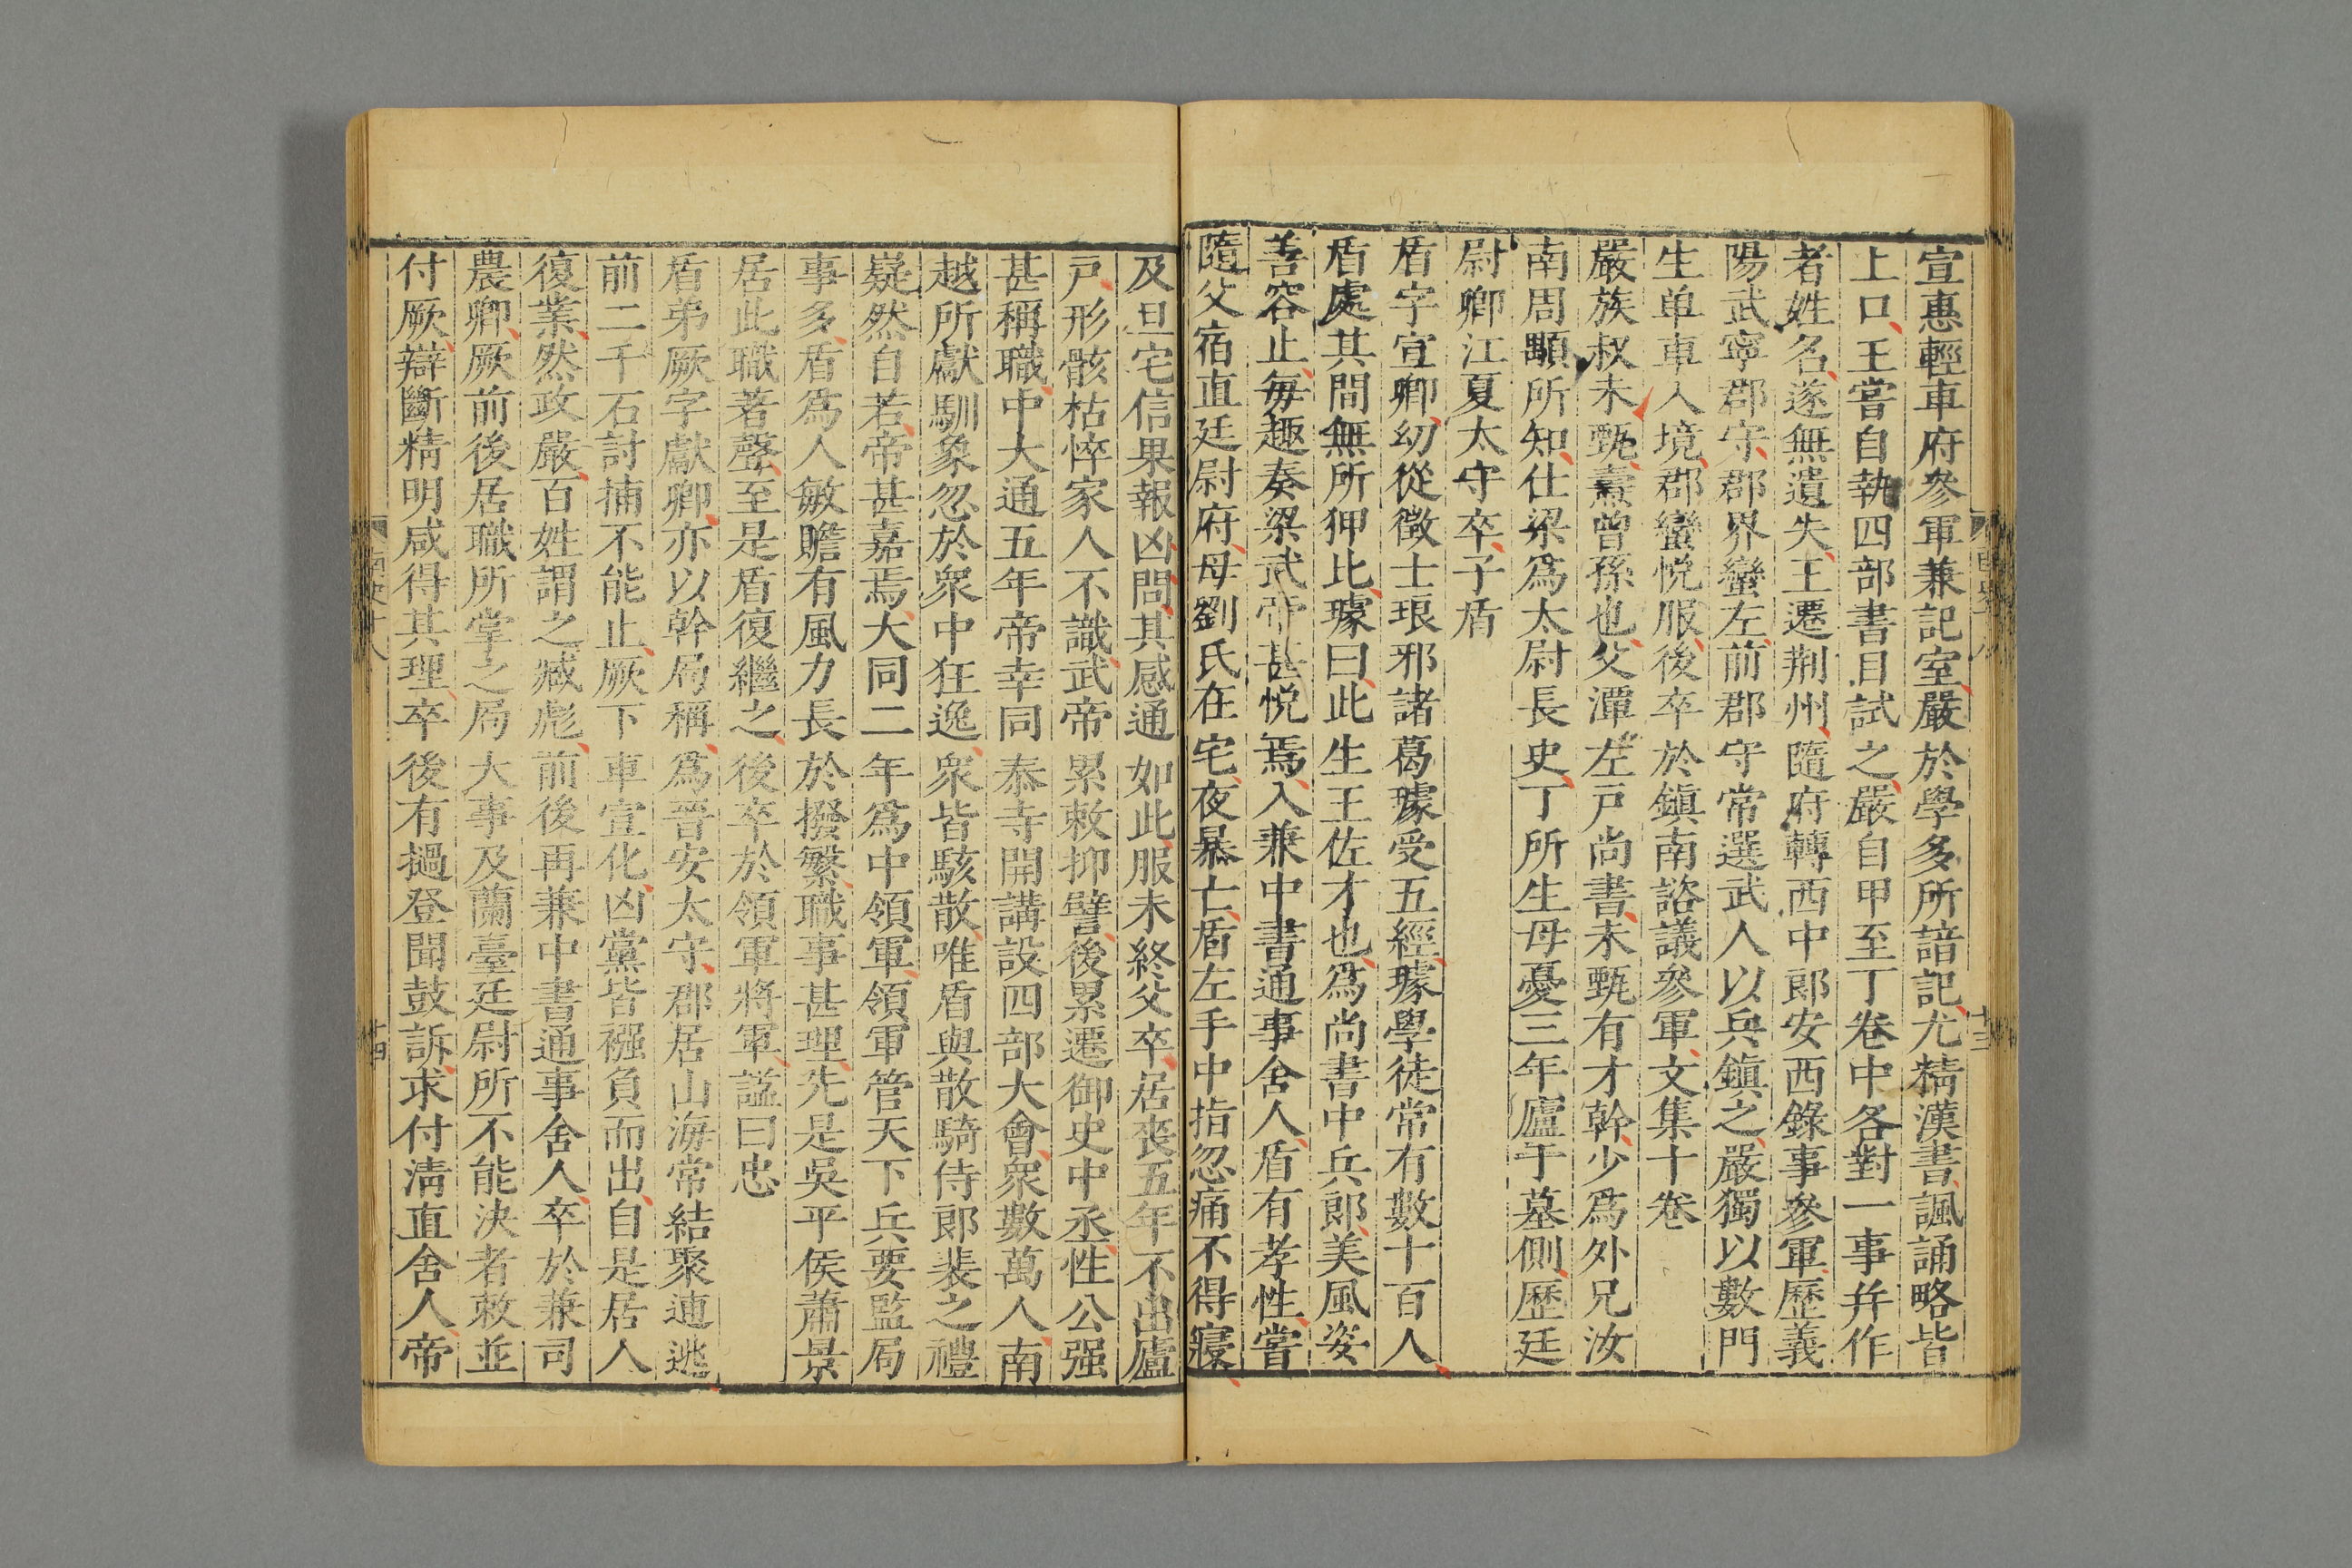 宣惠輕車府參軍兼記室嚴於學多所諳記尤精漢書諷誦略皆
上口王嘗自執四部書目試之嚴自甲至丁卷中各對一事幷作
者姓名遂無遺失王遷荆州隨府轉西中郎安西錄事參軍歷義
陽武寧郡守郡界蠻左前郡守常選武人以兵鎮之嚴獨以數門
生单車入境郡蠻悅服後卒於鎮南諮議參軍文集十卷
嚴族叔未甄燾曾孫也父潭左戸尚書未甄有才幹少爲外兄汝
南周顒所知仕梁爲太尉長史丁所生母憂三年廬于墓側歷廷
尉卿江夏太守卒子盾
盾字宣卿幼從徵士琅邪諸葛璩受五經璩學徒常有數十百人
盾處其間無所狎比璩曰此生王佐才也爲尚書中兵郎美風姿
善容止每趣奏梁武帝甚悅焉入兼中書通事舍人盾有孝性嘗
隨父宿直廷尉府母劉氏在宅夜暴亡盾左手中指忽痛不得寢
及旦宅信果報凶問其感通如此服未終父卒居喪五年不出廬
戸形骸枯悴家人不識武帝累敕抑譬後累遷御史中丞性公强
甚稱職中大通五年帝幸同泰寺開講設四部大會衆數萬人南
越所獻馴象忽於衆中狂逸衆皆駭散唯盾與散騎侍郎裴之禮
嶷然自若帝甚嘉焉大同二年爲中領軍領軍管天下兵要監局
事多盾爲人敏贍有風力長於撥繁職事甚理先是吳平侯蕭景
居此職著聲至是盾復繼之後卒於領軍將軍謚曰忠
盾弟厥字獻卿亦以幹局稱爲晉安太守郡居山海常結聚逋逃
前二千石討捕不能止厥下車宣化凶黨皆襁負而出自是居人
復業然政嚴百姓謂之臧彪前後再兼中書通事舍人卒於兼司
農卿厥前後居職所掌之局大事及蘭臺廷尉所不能決者敕並
付厥辯斷精明咸得其理卒後有撾登聞鼓訴求付淸直舍人帝